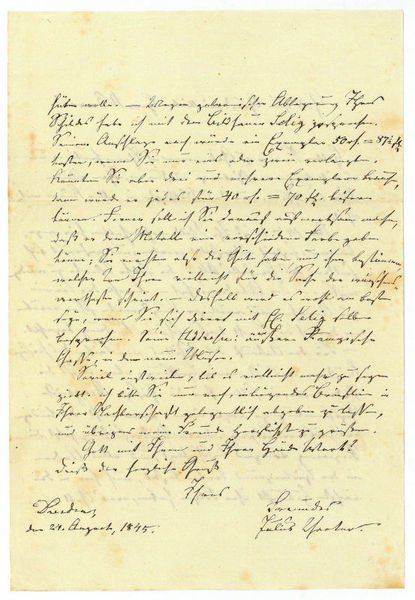 haben wolle. — Wegen galvanischer Ablegung Ihres
Schildes habe ich mit dem Bildhauer Selig gesprochen.
Seinem Anschlage nach würde ein Exemplar 50 =
kosten, wenn Sie nur eins oder zwei verlangten.
Könnten Sie aber drei und mehrere Exemplare brauchen,
dann würde er jedes für 40 = 70 liefern
können. Ferner soll ich Sie darauf aufmerksam machen,
daß er dem Metalle eine verschiedene Farbe geben
könne; Sie möchten also die Güte haben und ihm bestimmen
welcher Ton Ihnen vielleicht für die Sache der wünschens-
wertheste scheint. — Deshalb wird es wohl am besten
sein, wenn Sie sich direct mit H. Selig selbst
besprechen. Seine Addresse: äußere Rampische
Gasse, in dem neuen
Soviel einstweilen, bis es vielleicht mehr zu sagen
giebt. Ich bitte Sie nur noch, inliegendes Brieflein in
Ihrer Nachbarschaft gelegentlich abgeben zu lassen,
und übrigens meine Freunde herzlichst zu grüßen.
Gott mit Ihnen und Ihrer Hände Werk!
Dieß der herzliche Gruß
Ihres
Dresden, Freundes
den 24. August, 1845. Julius